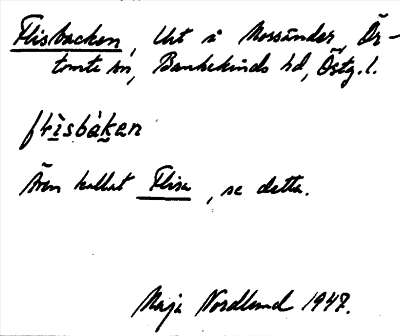 Flisbacken, Urt i Mossänder, Ör-
tomta sn, Bankekinds hd, Östg. l.
flìsbàkan
Även kallat Flisa, se detta.
Maja Nordlund 1947.